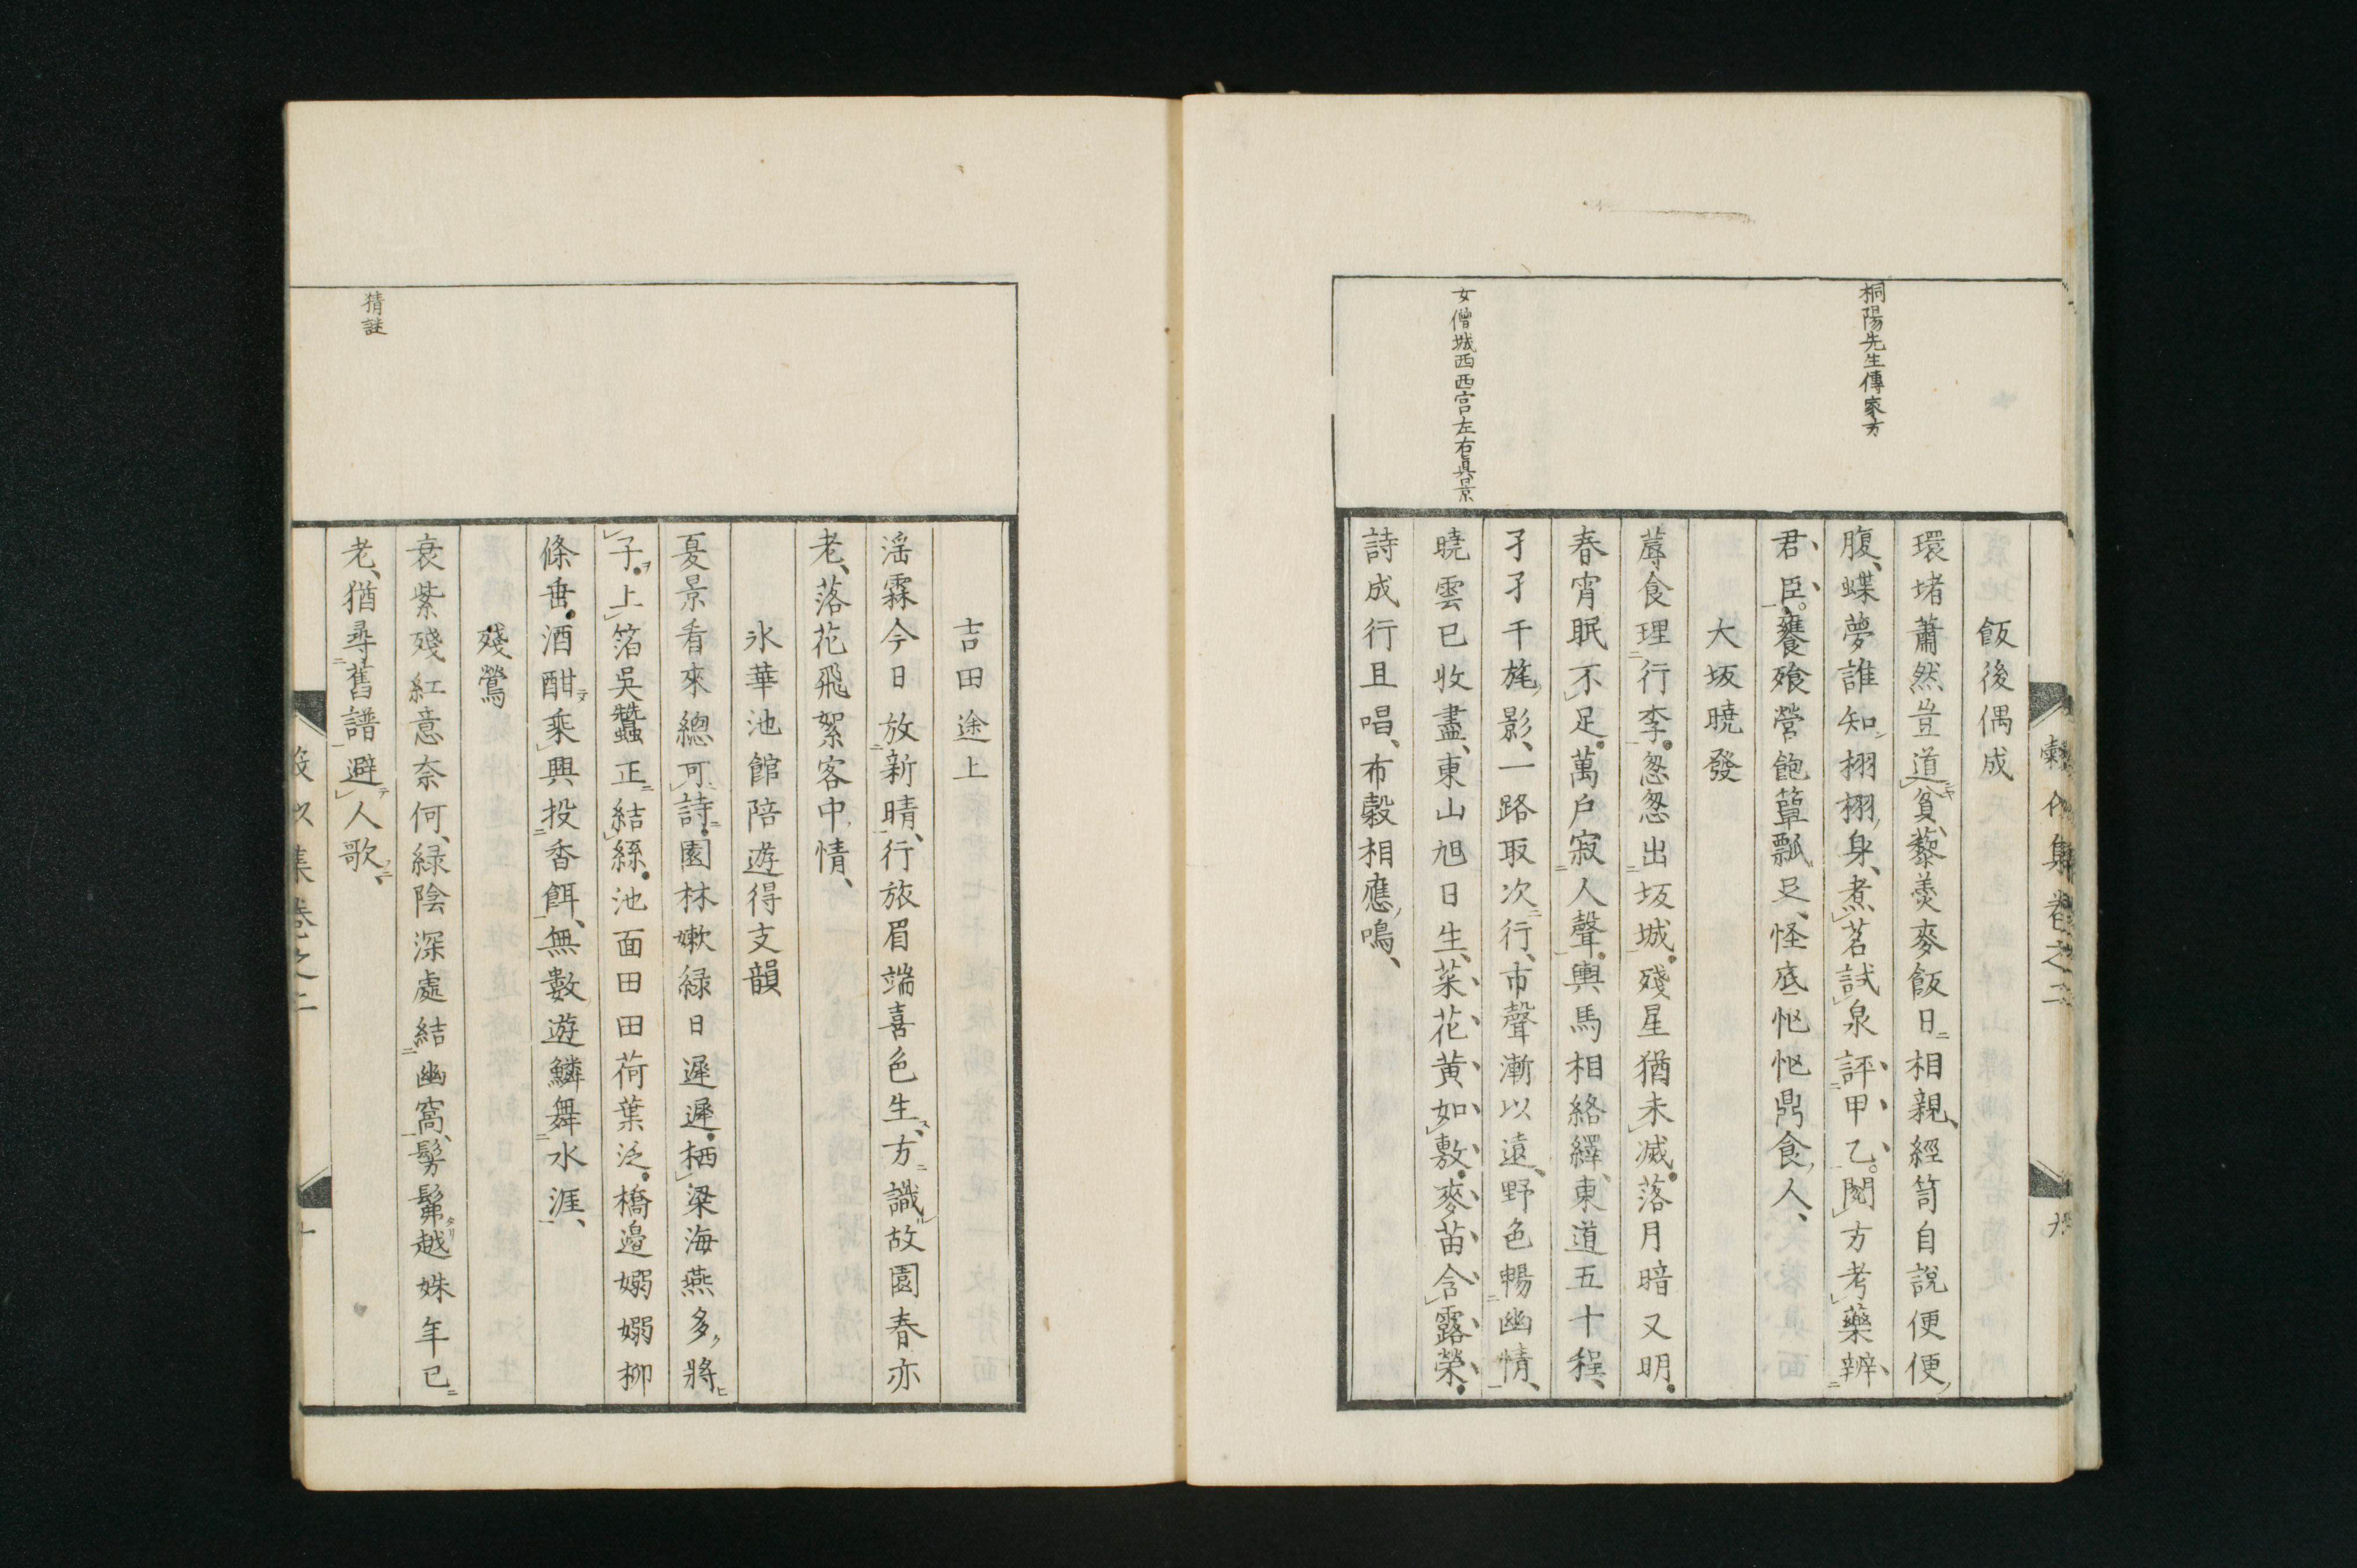 桐陽先生傳家方
女僧城西西宮左右眞景
飯後偶成
環堵蕭然豈道貧、藜羹麥飯日相親、經笥自説便便
腹、蝶夢誰知栩栩身、煮茗試泉評甲乙。閲方考藥辨
君臣。饔飱營飽簟瓢足、怪底怉怉鼎食人、
大坂曉發
蓐食理行李。怱怱出坂城。殘星猶未滅。落月暗又明。
春宵眠不足。萬戸寂人聲。輿馬相絡繹、東道五十程、
孑孑干旄影、一路取次行、市聲漸以遠、野色暢幽情、
曉雲已收盡、東山旭日生、菜花黄如敷。麥苗含露榮。
詩成行且唱、布穀相應鳴、
集卷之二
九
猜謎
吉田途上
滛霖今日放新晴、行旅眉端喜色生、方識故園春亦
老、落花飛絮客中情、
氷華池館陪遊得支韻
夏景看來總可詩。園林嫰緑日遲遲。栖梁海燕多將
子。上箔吳蠶正結絲。池面田田荷葉泛。橋邉嫋嫋柳
條垂。酒酣乘興投香餌、無數遊鱗舞水涯、
殘鶯
衰紫殘紅意奈何、緑陰深處結幽窩、髣髴越姝年已
老、猶尋舊譜避人歌、
集卷之二
十